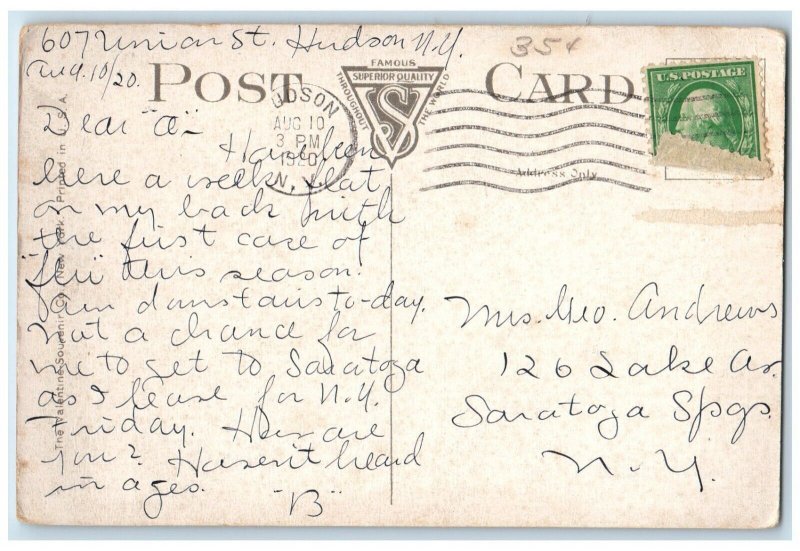 607 Union St. Hudson N.Y.
Aug. 10/20.
35¢
POST CARD
FAMOUS
SUPERIOR QUALITY
THROUGHOUT
THE WORLD
VS
HUDSON
AUG 10
3 PM
1920
N.Y.
U.S. POSTAGE
Address Only
Dear "A"-
Have been
here a week, flat
on my back with
the first case of
"flu" this season!
Am downstairs to-day.
Not a chance for
me to get to Saratoga
as I leave for N.Y.
Friday. How are
you? Haven't heard
in ages.
"B"
Mrs. Geo. Andrews
126 Lake Av.
Saratoga Spgs.
N.Y.
The Valentine Souvenir Co. New York. Printed in U.S.A.